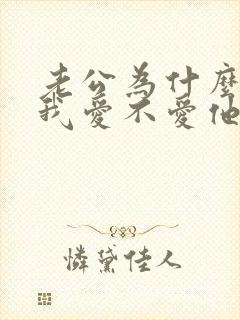 老公為什麼
我愛不愛他
憐黛佳人